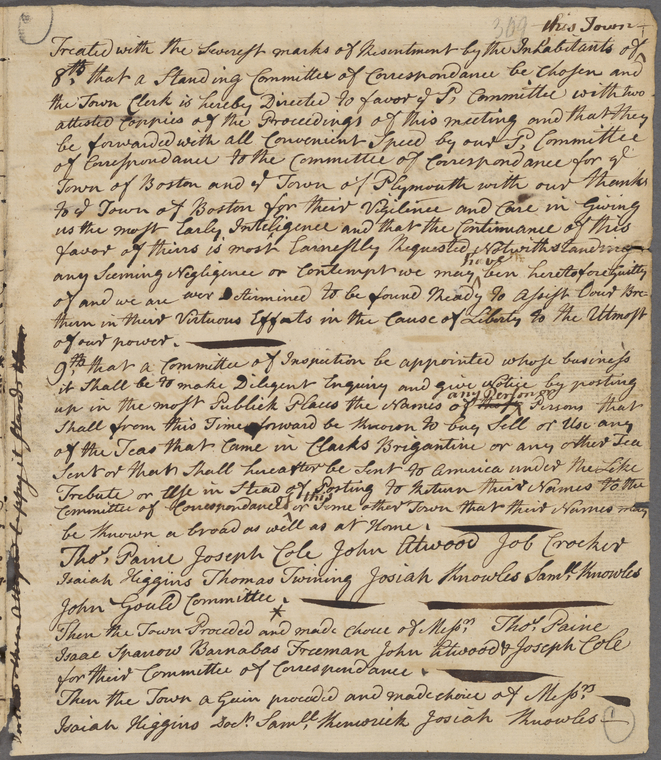 309 this Town
Treated with the Severest marks of Resentment by the Inhabitants of
8th, that a Standing Committee of Correspondance be Chosen and
the Town Clerk is hereby Directed to favor ye Sd, Committee with two
attested Coppies of the Proceedings of this meeting and that they
be forwarded with all Convenient Speed by our Sd, Committee
of Correspondance to the Committee of Correspondance for ye
Town of Boston and ye Town of Plymouth with our thanks
to ye Town of Boston for their Vigilince and Care in Giving
us the most Early Inteligence and that the Continuance of this
favor of theirs is most Earnestly Requested Notwithstanding
any Seeming Negligence or Contempt we may have ben heretofore guilty
of and we are ever Determined to be found Ready to Assist Our Bre-
thern in their Virtuous Efforts in the Cause of Liberty to the Utmost
of our power.
9th that a Committee of Inspection be appointed whose business
it Shall be to make Diligent Enquiry and give Notice by posting
up in the most Publick Places the Names of any Person or Persons that
Shall from this Time forward be known to buy Sell or Use any
of the Teas that Came in Clarks Brigantine or any other Tea
Sent or that Shall hereafter be Sent to America under the Like
Trebute or Else in Stead of Posting to Return their Names to the
Committee of Correspondance of this or Some other Town that their Names may
be known a broad as well as at Home.
Thos, Paine Joseph Cole John Atwood Job Crocker
Isaiah Higgins Thomas Twining Josiah Knowles Samll Knowles
John Gould Committee.
*
Then the Town Proceded and made choice of Messrs Thos, Paine
Isaac Sparrow Barnabas Freeman John Atwood & Joseph Cole
for their Committee of Correspondance
Then the Town a Gain proceded and made choice of Messrs
Isaiah Higgins Docr, Samll, Kenwrick Josiah Knowles